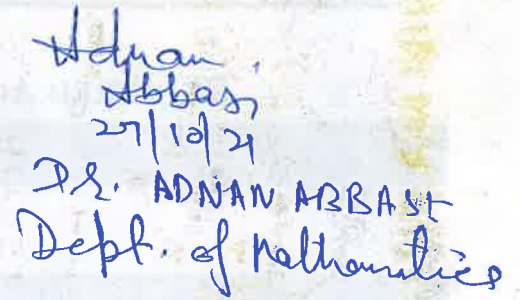 Adnan
Abbasi
27/10/21
Dr. ADNAN ABBASI
Dept. of Mathematics